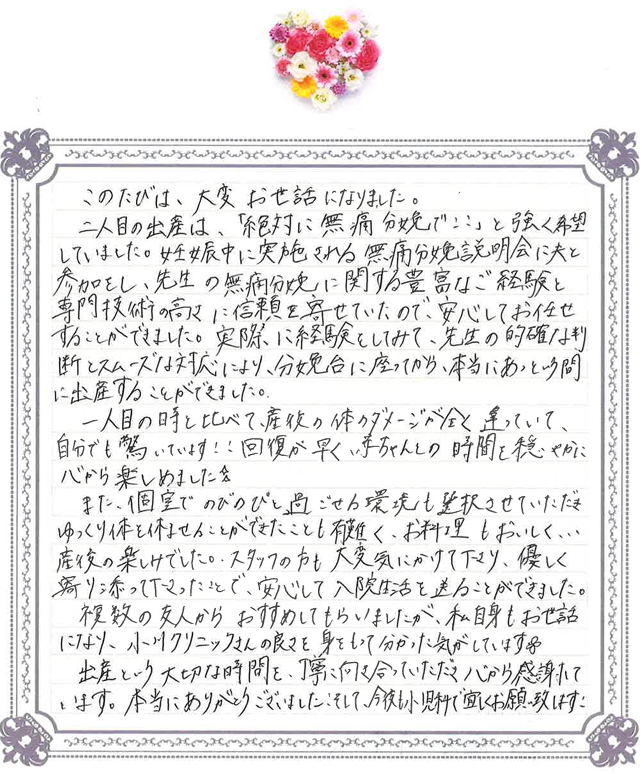 このたびは、大変お世話になりました。
二人目の出産は、「絶対に無痛分娩で!!」と強く希望
していました。妊娠中に実施される無痛分娩説明会に夫と
参加をし、先生の無痛分娩に関する豊富なご経験と
専門技術の高さに信頼を寄せていたので、安心してお任せ
することができました。実際に経験をしてみて、先生の的確な判
断とスムーズな対応により、分娩台に座ってから、本当にあっという間
に出産することができました。
一人目の時と比べて、産後の体のダメージが全く違っていて、
自分でも驚いています!!回復が早く、赤ちゃんとの時間を穏やかに
心から楽しめました
また、個室でのびのびと過ごせる環境も選択させていただき
ゆっくり体を休ませることができたことも有難く、お料理もおいしく...
産後の楽しみでした。スタッフの方も大変気にかけて下さり、優しく
寄り添って下さったことで、安心して入院生活を送ることができました。
複数の友人からおすすめしてもらいましたが、私自身もお世話
になり、小川クリニックさんの良さを身をもって分かった気がしています
出産という大切な時間を、丁寧に向き合っていただき心から感謝して
います。本当にありがとうございました。そして、今後も小児科で宜しくお願い致します